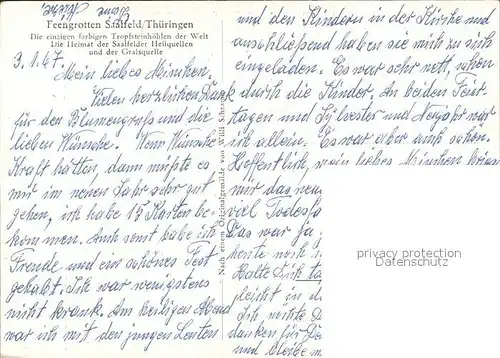 Feengrotten Saalfeld/Thüringen
Die einzigen farbigen Tropfsteinhöhlen der Welt
Die Heimat der Saalfelder Heilquellen
und der Gralsquelle
3.1.67.
Mein liebes Minchen,
Vielen herzlichen Dank
für den Blumengruß und die
lieben Wünsche. Wenn Wünsche
Kraft hätten, dann müßte es
mir im neuen Jahr sehr gut
gehen, ich habe 15 Karten be-
kommen. Auch sonst habe ich
Freude und ein schönes Fest
gehabt. Ich war wenigstens
nicht krank. Am heiligen Abend
war ich mit den jungen Leuten
Nach einem Originalgemälde von Willi
und den Kindern in der Kirche und
anschließend haben sie mich zu sich
eingeladen. Es war sehr nett, schon
durch die Kinder. An beiden Feier-
tagen und Sylvester und Neujahr war
ich allein. Es war aber auch schön.
Hoffentlich, mein liebes Minchen
mir das neue
viel Todesfa
Das war ja
heute noch
Halte Dich
gleich in d
Ich möchte
danken für
und bleibe
privacy protection
Datenschutz